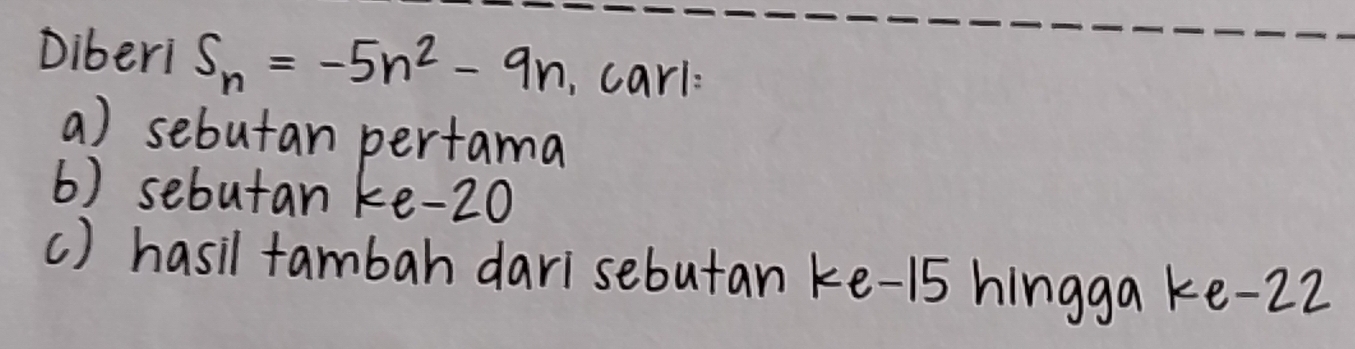 Diberi Sₙ = -5n² - 9n, cari:
a) sebutan pertama
b) sebutan ke-20
c) hasil tambah dari sebutan ke-15 hingga ke-22